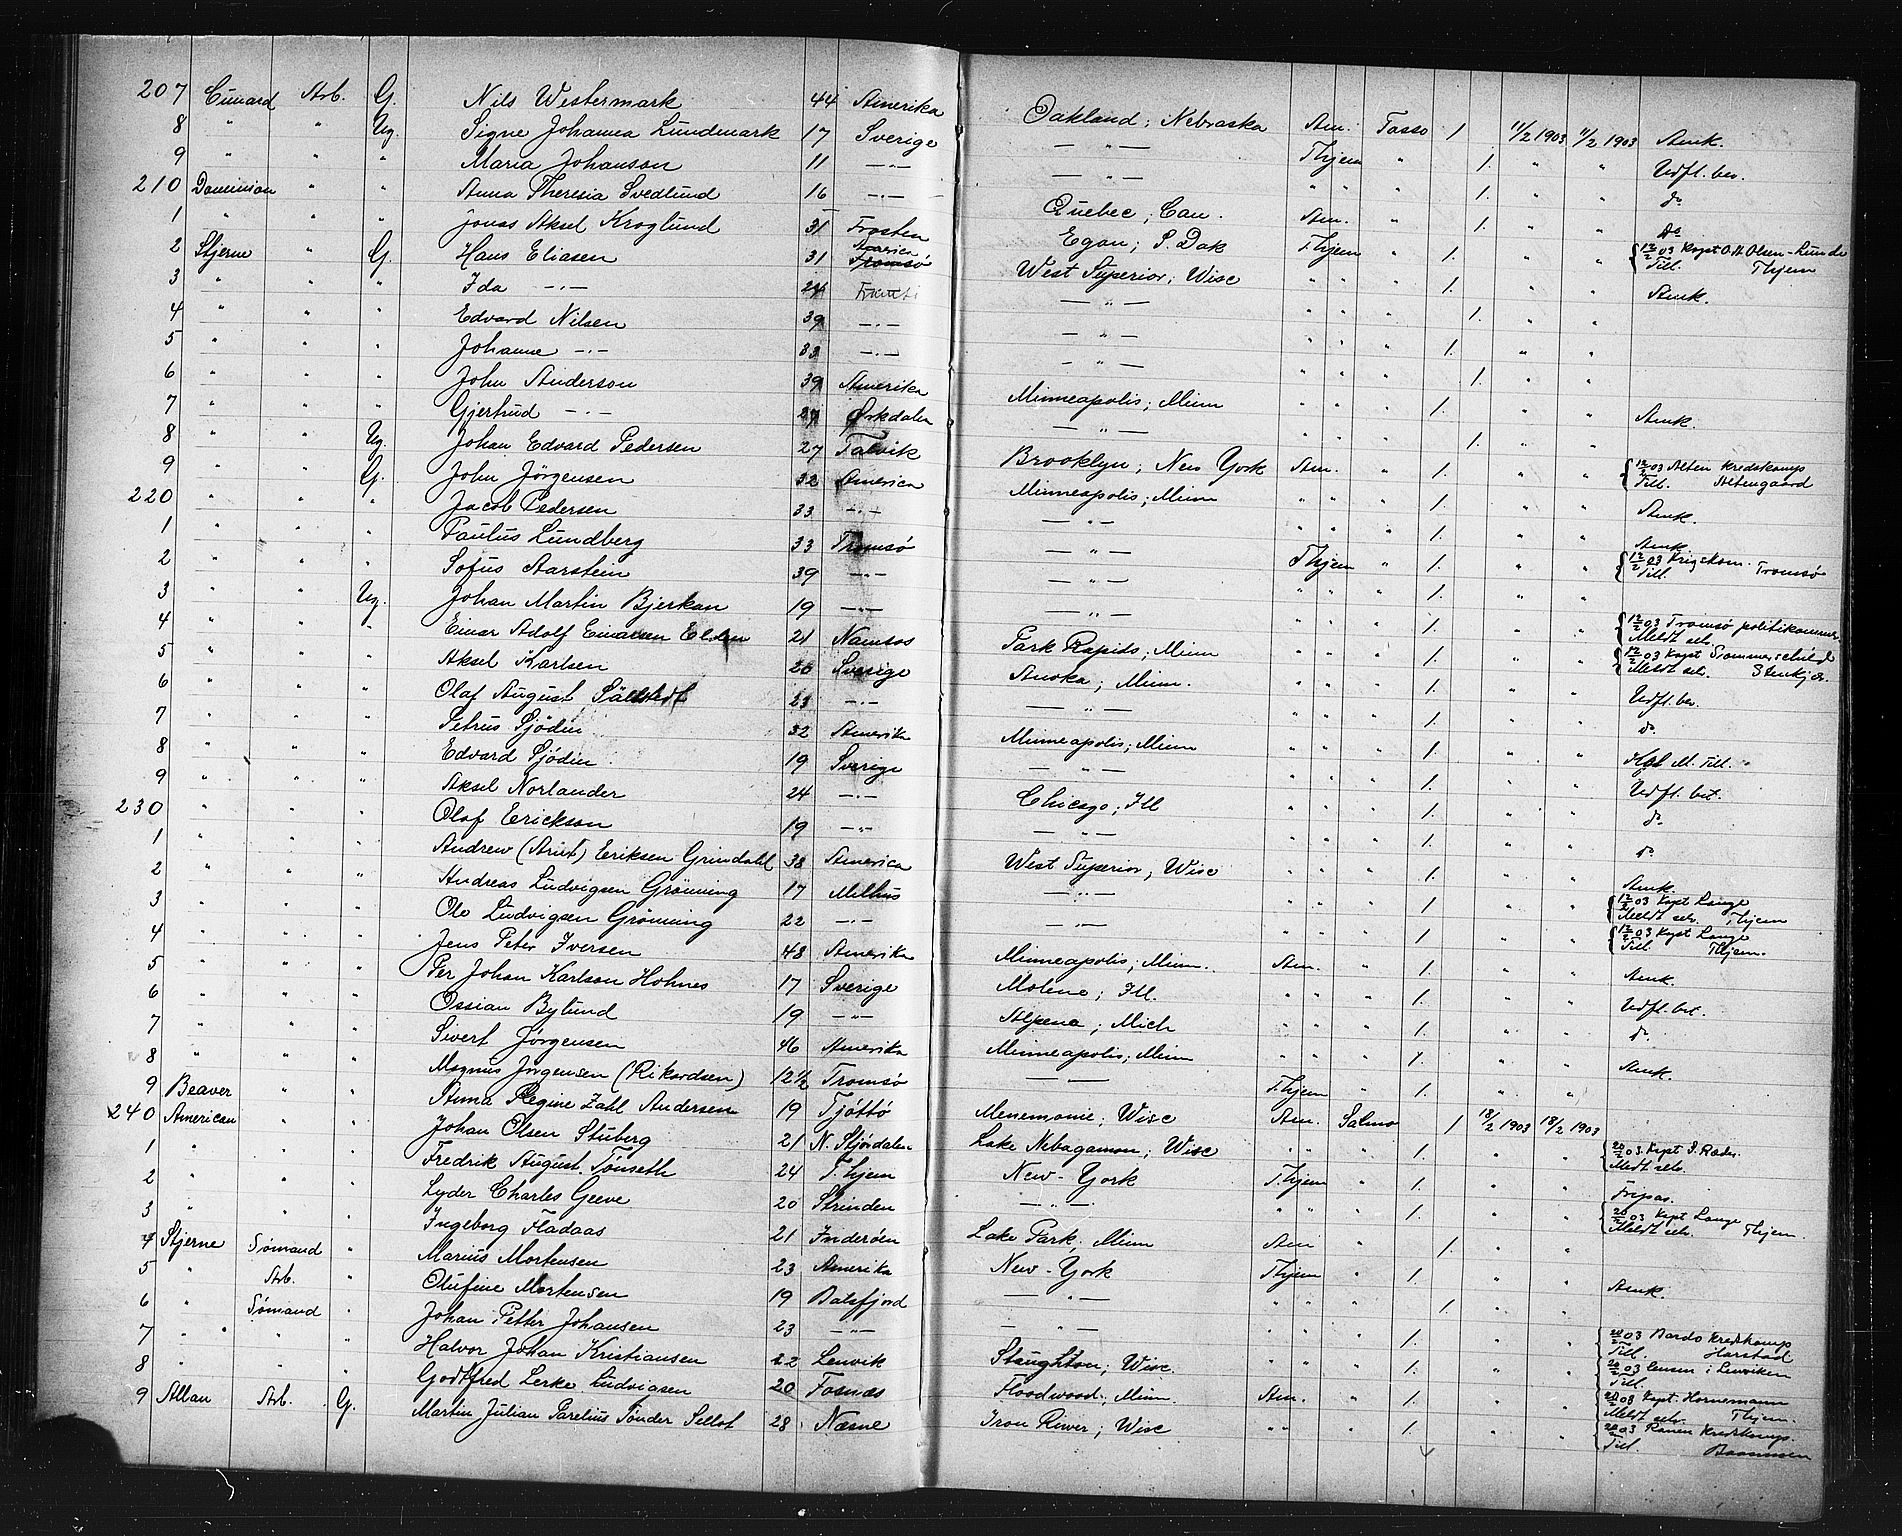 207 Cunard Arb. G. Nils Westermark 44 Amerika Oakland; Nebraska Am. Tasso 1. 11/2 1903 11/2 1903 Amk.
8 " " Ug. Signe Johanna Lundmark 17 Sverige — " — Thjem " 1. " " Udfl. bev.
9 " " " Maria Johanson 11 —"— — " — " " " 1. " " do
210 Dominion " " Anna Theresia Svedlund 16 —"— Quebec; Can. Am. " 1. " " do
1 " " " Jonas Aksel Kroglund 31 Frosten Egan; S. Dak Thjem " 1. " " 12/2 03 Kapt O. A. Olsen-Lunde Till. Thjem
2 Stjerne " G. Hans Eliasen 31 America West Superior; Wisc " " " 1. " " Amk.
3 " " " Ida —"— 24 — " — " " " 1. " "
4 " " " Edvard Nilsen 39 —"— — " — " " " 1. " "
5 " " " Johanne —"— 33 —"— — " — " " " 1. " "
6 " " " John Anderson 39 Amerika Minneapolis; Minn " " " 1. " " Amk.
7 " " " Gjertrud —"— 27 Orkdalen — " — " " " 1. " "
8 " " Ug. Johan Edvard Pedersen 27 Talvik Brooklyn; New York Am. " 1. " " 12/2 03 Alten Kredskomp Till. Altengaard
9 " " G. John Jörgensen 32 America Minneapolis; Minn " " " 1. " " Amk.
220 " " " Jacob Pedersen 33 —"— — " — " " " 1. " " Amk.
1 " " " Paulus Lundberg 33 Tromsø — " — Thjem " 1. " " 12/2 03 Krigskom. Tromsø Till.
2 " " " Sofus Aarstein 39 —"— — " — " " " 1. " "
3 " " Ug. Johan Martin Bjerkan 19 —"— — " — " " " 1. " " 12/2 03 Tromsø politikammer Meldt selv.
4 " " " Einar Adolf Einarsen Elden 21 Namsos Park Rapids; Minn " " " 1. " " 12/2 03 Kapt Sommerschield Meldt selv. Stenkjær.
5 " " " Aksel Karlsen 20 Sverige Anoka; Minn. " " " 1. " " Udfl. bev.
6 " " " Olaf August 23 —"— — " — " " " 1. " " do
7 " " " Petrus Sjödin 32 Amerika Minneapolis; Minn " " " 1. " " M. Till.
8 " " " Edvard Sjödin 19 Sverige — " — " " " 1. " " Udfl. bet.
9 " " " Aksel Norlander 24 —"— Chicago; Ill " " " 1. " " do
230 " " " Olof Erickson 19 —"— — " — " " " 1. " " do
1 " " " Andrew (Arnt) Eriksen Grindahl 38 America West Superior; Wisc " " " 1. " " Amk.
2 " " " Andreas Ludvigsen Grönning 17 Melhus — " — " " " 1. " " 12/2 03 Kapt Lange Meldt selv. Thjem
3 " " " Ole Ludvigsen Grönning 22 —"— — " — " " " 1. " " 12/2 03 Kapt Lange Till Thjem.
4 " " " Jens Peter Iversen 48 Amerika Minneapolis; Minn. Am. " 1. " " Amk.
5 " " " Per Johan Karlson Hohnes 17 Sverige Molene; Ill. " " " 1. " " Udfl. bet.
6 " " " Ossian Bylund 19 —"— Alpena; Mich " " " 1. " " do
7 " " " Sivert Jørgensen 46 Amerika Minneapolis; Minn " " " 1. " " Amk.
8 " " " Magnus Jørgensen (Rikardsen) 12 1/2 Tromsø — — Thjem " 1. " "
9 Beaver " " Anna Regine Zahl Andersen 19 Tjöttö Menemonie; Wisc Am. Salmo 1 18/2 1903 18/2 1903
240 American " " Johan Olsen Stuberg 21 N. Stjørdalen Lake Nebagamon; Wisc " " " 1. " " 20/2 03. Kapt S. Ræder. Medt selv.
1 " " " Fredrik August Tönseth 24 T.hjem New-York T.hjem " 1. " " Fripas.
2 " " " Lyder Charles Geeve 20 Strinden — " — " " " 1. " " 20/2 03 Kapt Lange Meldt selv. Thjem.
3 " " " Ingeborg Fladaas 21 Inderøen Lake Park; Minn Am " 1. " "
4 Stjerne Sømand " Marius Mortensen 23 Amerika New-York Thjem " 1. " " Amk.
5 " Arb. " Olufine Mortensen 19 Balsfjord — " — " " " 1. " "
6 " Sømand " Johan Petter Johansen 23 —"— — " — " " " 1. " " 20/2 03 Bardo Kredskomp Till. Harstad
7 " " " Halvor Johan Kristiansen 22 Lenvik Staughton; Wisc. " " " 1. " " 20/2 03 Lensm i Lenviken Till.
8 " " " Godtfred Lerke Ludvigsen 20 Fosnæs Floodwood; Minn Am. " 1. " " 20/2 03 Kapt. Hornemann Meldt selv. Thjem.
9 Allan Arb. G. Martin Julian Parelius Tønder Sellot 28 Næsne Iron River; Wisc " " " 1. " " 20/2 03 Ranen Kredskomp. Till